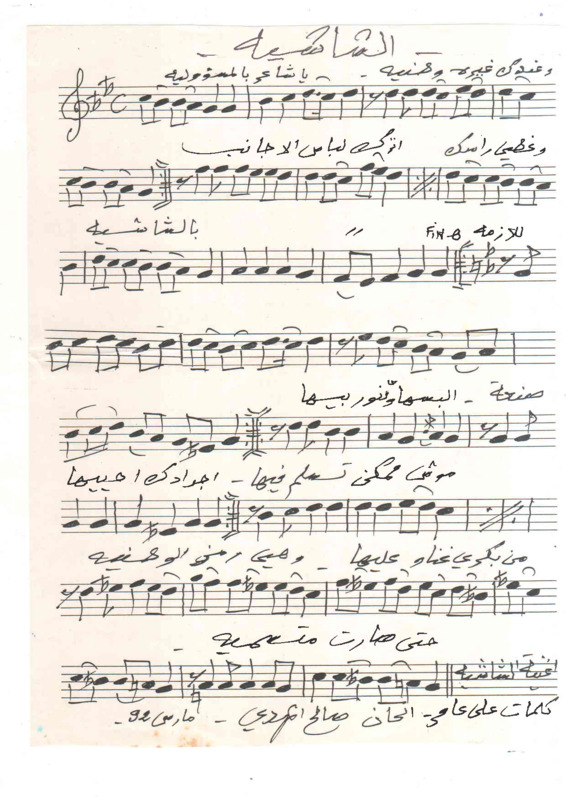 - الشاشية -
وعندك غيره وطنية - يا شاعر بالمسؤولية
وغطي راسك اترك لباس الاجانب
للازمة FiN-B 〃 بالشاشية
صنعة - البسها وتنور بيها
موش ممكن تسلم فيها - اجدادك
عليها - وهي رمز الوطنية
حتى صارت
اغنية الشاشية
كلمات علي - الحان صالح - مارس 92 -